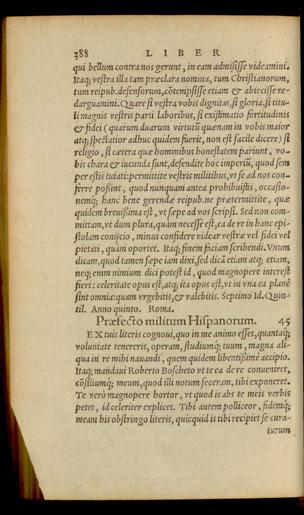 388 LIBER
qui bellum contra nos gerunt, in eam admisisse videamini.
Itaq; vestra illa tam præclara nomina, tum Christianorum,
tum reipub. defensorum, cōtempsisse etiam & abiecisse re-
darguamini. Quare si vestra vobis dignitas, si gloria, si titu-
li magnis vestris parti laboribus, si existimatio fortitudinis
& fidei (quarum duarum virtutū quænam in vobis maior
atq; spectatior adhuc quidem fuerit, non est facile dicere) si
religio, si cætera quæ hominibus honestatem pariunt, vo-
bis chara & iucunda sunt, defendite hoc imperiū, quod sem
per estis tutati: permittite vestris militibus, vt se ad nos con-
ferre possint, quod nunquam antea prohibuistis, occasio-
nemq; hanc bene gerendæ reipub. ne prætermittite, quæ
quidem breuissima est, vt sæpe ad vos scripsi. Sed non com-
mittam, vt dum plura, quàm necesse est, ea de re in hanc epi-
stolam conijcio, minus confidere videar vestræ vel fidei vel
pietati, quàm oportet. Itaq; finem faciam scribendi. Vnum
dicam, quod tamen sæpe iam dixi, sed dicā etiam atq; etiam,
neq; enim nimium dici potest id, quod magnopere interest
fieri: celeritate opus est, atq; ita opus est, vt in vna ea planè
sint omnia: quam vrgebitis, & valebitis. Septimo Id. Quin-
til. Anno quinto. Roma.
Præfecto militum Hispanorum. 45
EX tuis literis cognoui, quo in me animo esses, quantaq;
voluntate tenereris, operam, studiumq; tuum, magna ali-
qua in re mihi nauandi, quem quidem libentissimè accipio.
Itaq; mandaui Roberto Boscheto vt te ea de re conueniret,
cōsiliumq; meum, quod illi notum feceram, tibi exponeret.
Te verò magnopere hortor, vt quod is abs te meis verbis
petet, id celeriter explices. Tibi autem polliceor, fidemq;
meam his obstringo literis, quicquid is tibi recipiet se cura-
turum